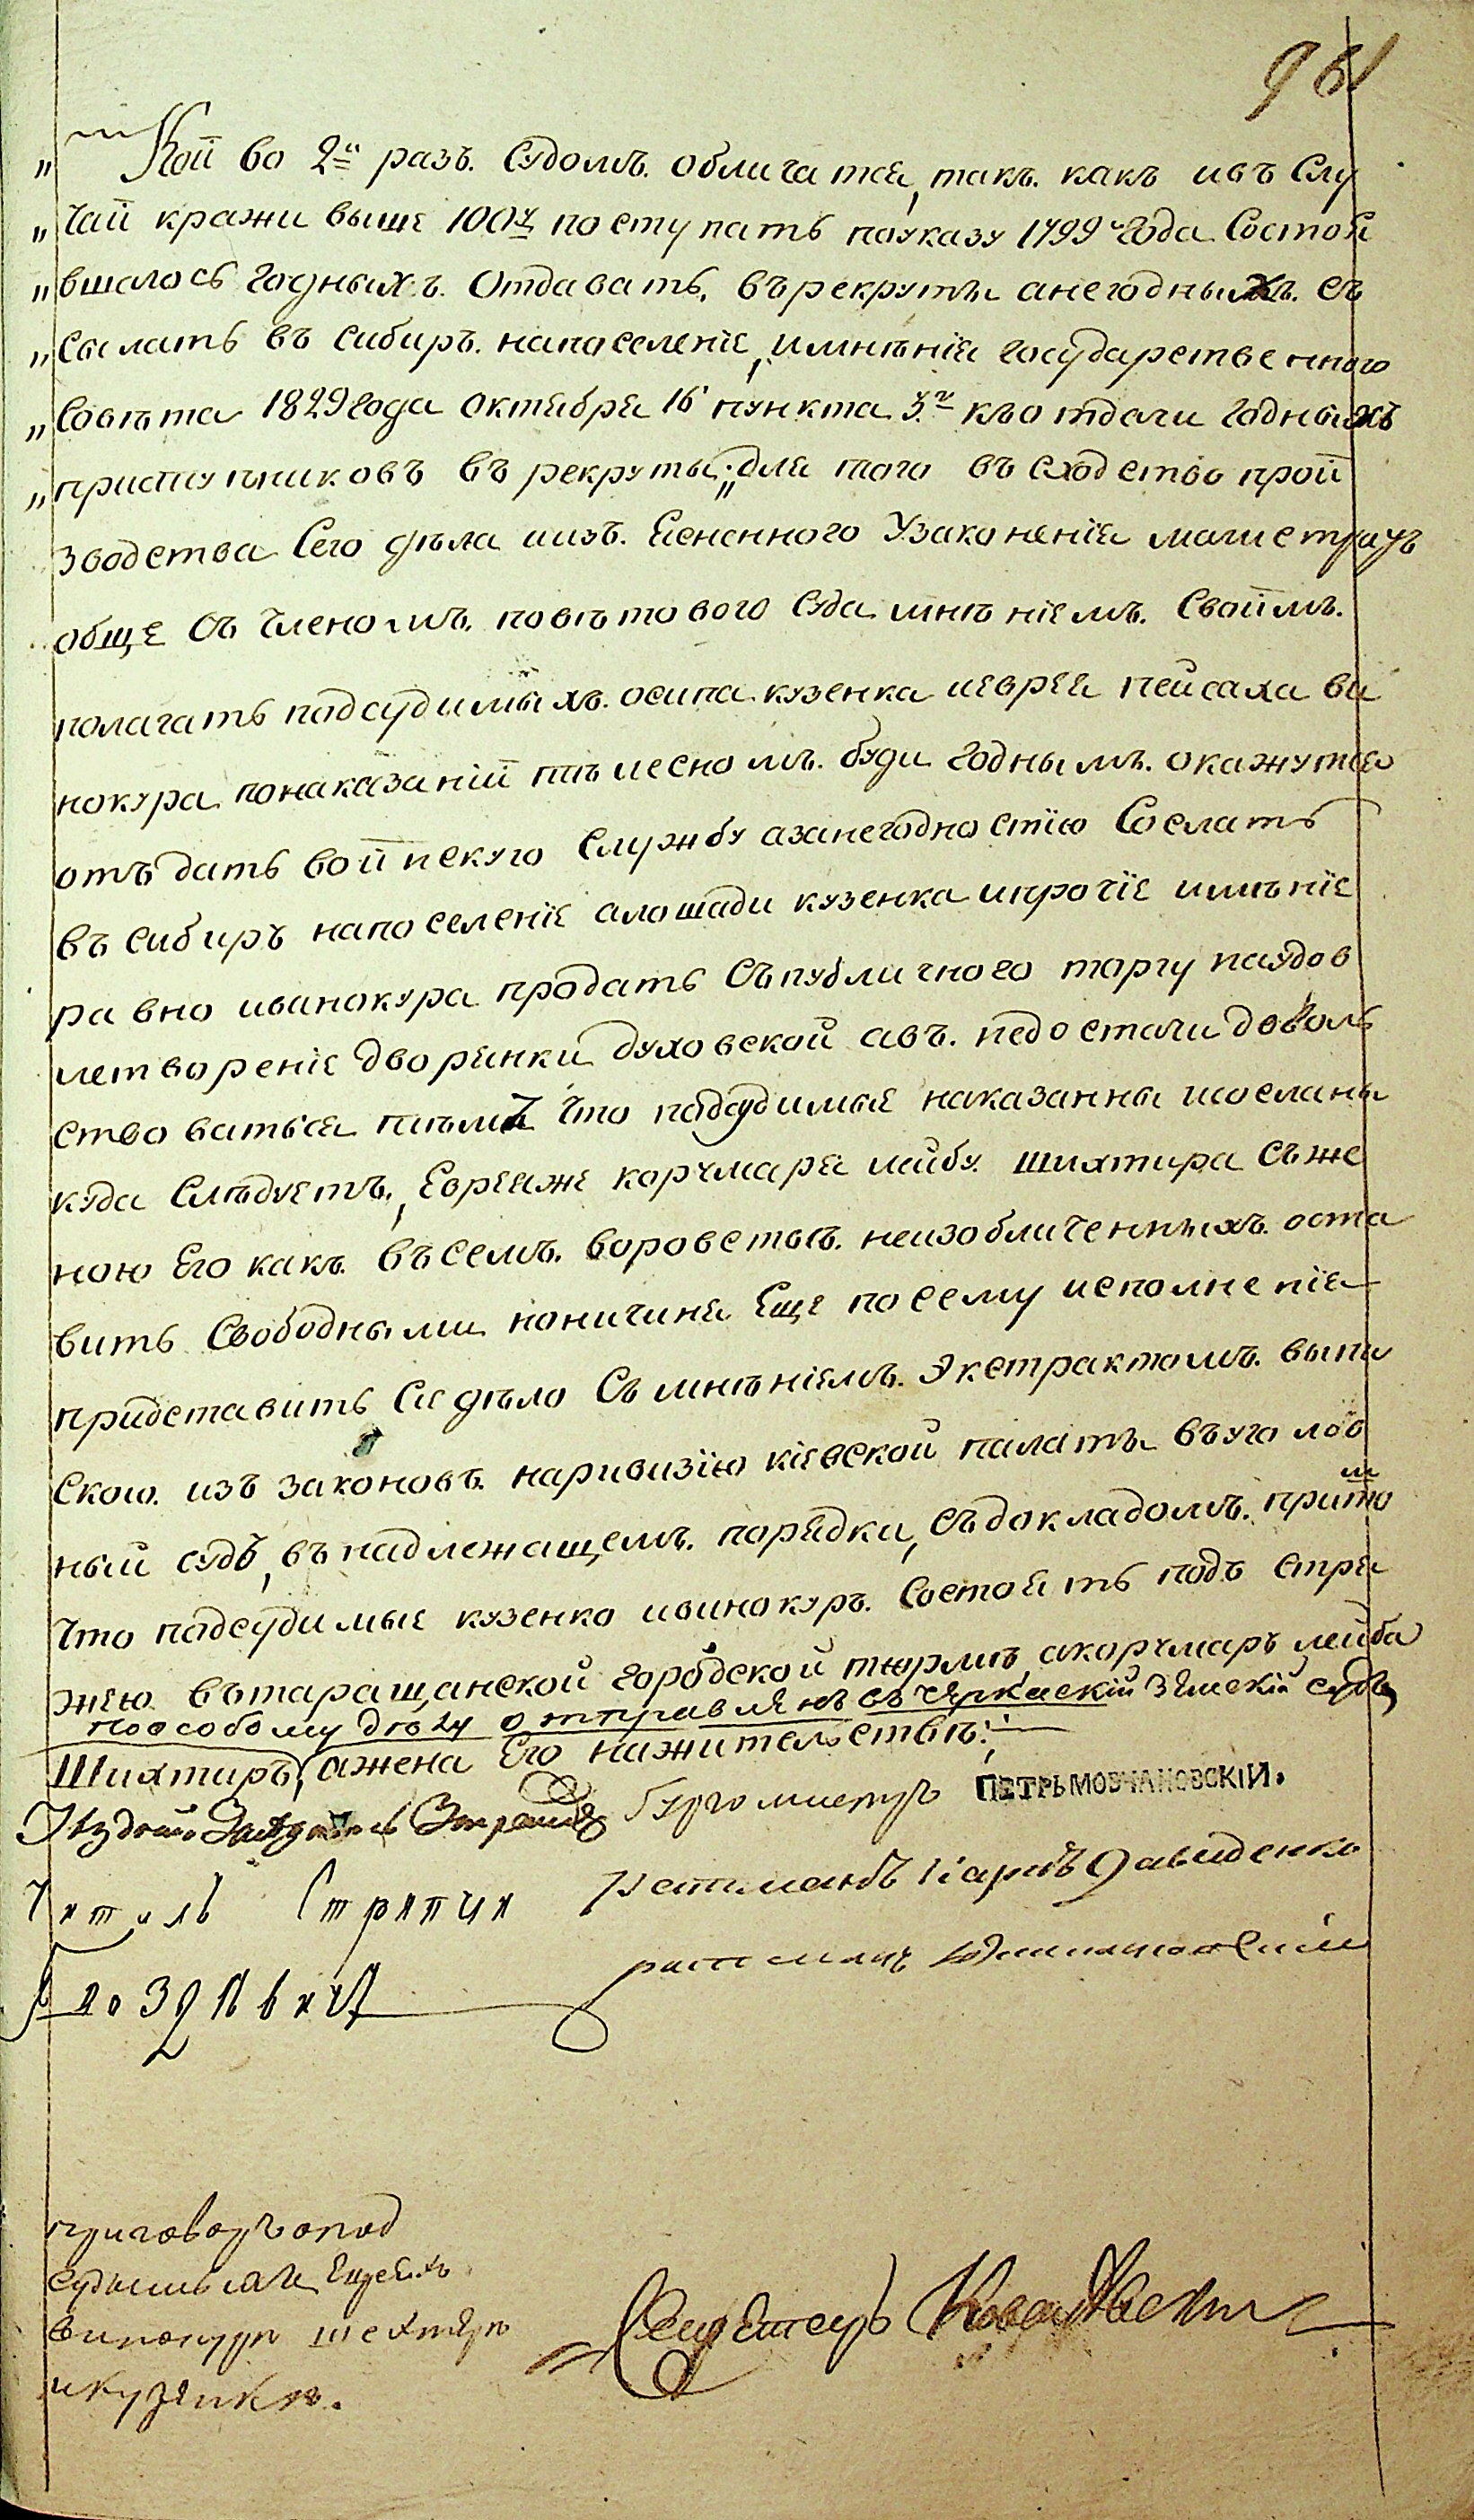 961
„ Кой во 2й разъ. Судомъ. обличатся, такъ. какъ ивъ Слу
„ чаи кражи выше 100р поступать поуказу 1799 года Состоя
„ вшалось годныхъ. Отдавать, върекруты анегодныхъ. съ
„ сылать въ сибирь. напоселеніе, имненія государственного
„ Совѣта 1829 года октября 16 пункта 3го къотдачи годныхъ
„ приступниковъ въ рекруты; „ для того въ сходство прой
зводства Сего дѣла иизъ. Ясненного Узаконенія магистратъ
обще съ членомъ. повѣтового Суда мнѣніемъ. Своимъ.
полагать подсудимыхъ. осипа кузенка иеврея пейсаха ви
нокура понаказаній тѣлесномъ. буди годнымъ. окажутся
отъдать войнскую Службу азанегодностію Сослать
въ сибирь напоселеніе алошади кузенка ипрочіе имѣніе
равно ивинокура продать Съпубличного торгу наудов
летвореніе дворянки духовской авъ. недостачи доволь
ствоваться тѣмъ что подсудимые наказанны исосланы
куда Слѣдуетъ, Евреяже корчмаря лейбу шихтира съже
ною Его какъ въсемъ. воровствѣ. неизобличенныхъ. оста
вить Свободными ноничиня Еще посему исполненія
придставить Сіе дѣло Съ мнѣніемъ. Экстрактомъ. выпи
скою. изъ законовъ. наривизію кіевской палаты въуголов
ный судъ, въ надлежащемъ. порядки, съдокладомъ. притомъ
что подсудимые кузенко ивинокуръ. Состоятъ подъ стра
жею вътаращанской городской тюрмѣ, акорчмаръ лейба
поособому делу отправленъ въ черкаскій Земскій судъ
Шихтиръ, ажена Его нажительствѣ:
бургомистръ ПЕТРЪ МОВЧАНОВСКІЙ.
Уѣздной
Ратманъ Карпъ Давиденко
Стряпчи
ратманъ
приговоръ опод
судимыхъ Евреяхъ
винокура шехтера
икузенка.
Секретарь